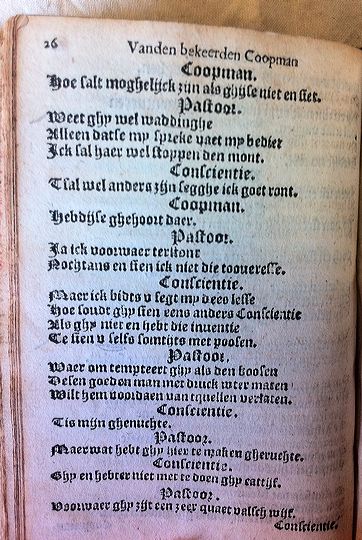 26
Vanden bekeerden Coopman
Coopman.
Hoe salt moghelijck zijn als ghyse niet en siet.
Pastoor.
Weet ghy wel waddinghe
Alleen datse my spreke yaet my bediet
Ick sal haer wel stoppen den mont.
Conscientie.
Tsal wel anders zijn segghe ick goet ront.
Coopman.
Hebdijse ghehoort daer.
Pastoor.
Ja ick voorwaer terstont
Nochtans en sien ick niet die tooveresse.
Conscientie.
Maer ick bidts u segt my dees lesse
Hoe soudt ghy sien eens anders Conscientie
Als ghy niet en hebt die inventie
Te sien u selfs somtijts met poosen.
Pastoor.
Waer om tempteert ghy als den boosen
Desen goeden man met druck uter maten
Wilt hem voordaen van quellen verlaten.
Conscientie.
Tis mijn ghenuchte.
Pastoor.
Maer wat hebt ghy hier te maken gheruchte.
Conscientie.
Ghy en hebter niet met te doen ghy cattijf.
Pastoor.
Voorwaer ghy zijt een zeer quaet valsch wijf.
Conscientie.